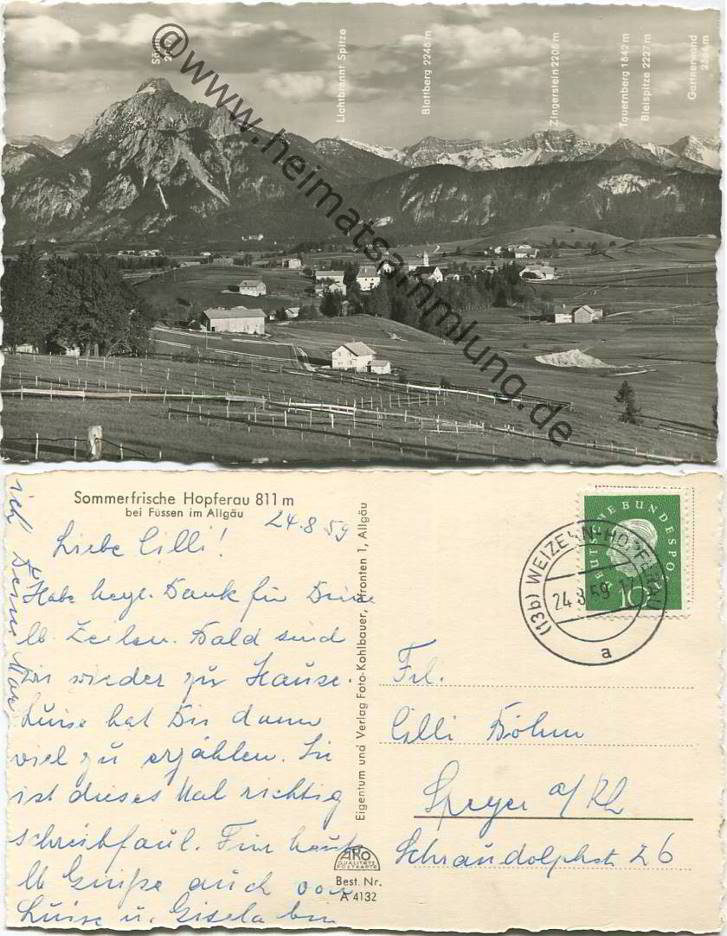 Säuling
Lichtbrennt Spitze
Blattberg 2246 m
Zingerstein 2206 m
Tauernberg 1842 m
Bleispitze 2227 m
Gartnerwand
© www.heimatsammlung.de
Sommerfrische Hopferau 811 m
bei Füssen im Allgäu
24.8.59
Liebe Cilli!
Habe herzl. Dank für Deine
lb. Zeilen. Bald sind
wir wieder zu Hause.
Luise hat Dir dann
viel zu erzählen. Sie
ist dieses Mal richtig
schreibfaul. Für heute
lb Grüße auch von
Luise u. Gisela bin
ich Deine
Eigentum und Verlag Foto-Kohlbauer, Pfronten 1, Allgäu
AKO
QUALITÄTS
POSTKARTE
Best. Nr.
A 4132
DEUTSCHE BUNDESPOST
10
(13b) WEIZERN-HOPFERAU
24.8.59-17
a
Frl.
Cilli Böhm
Speyer a/Rh
Schraudolphstr 26